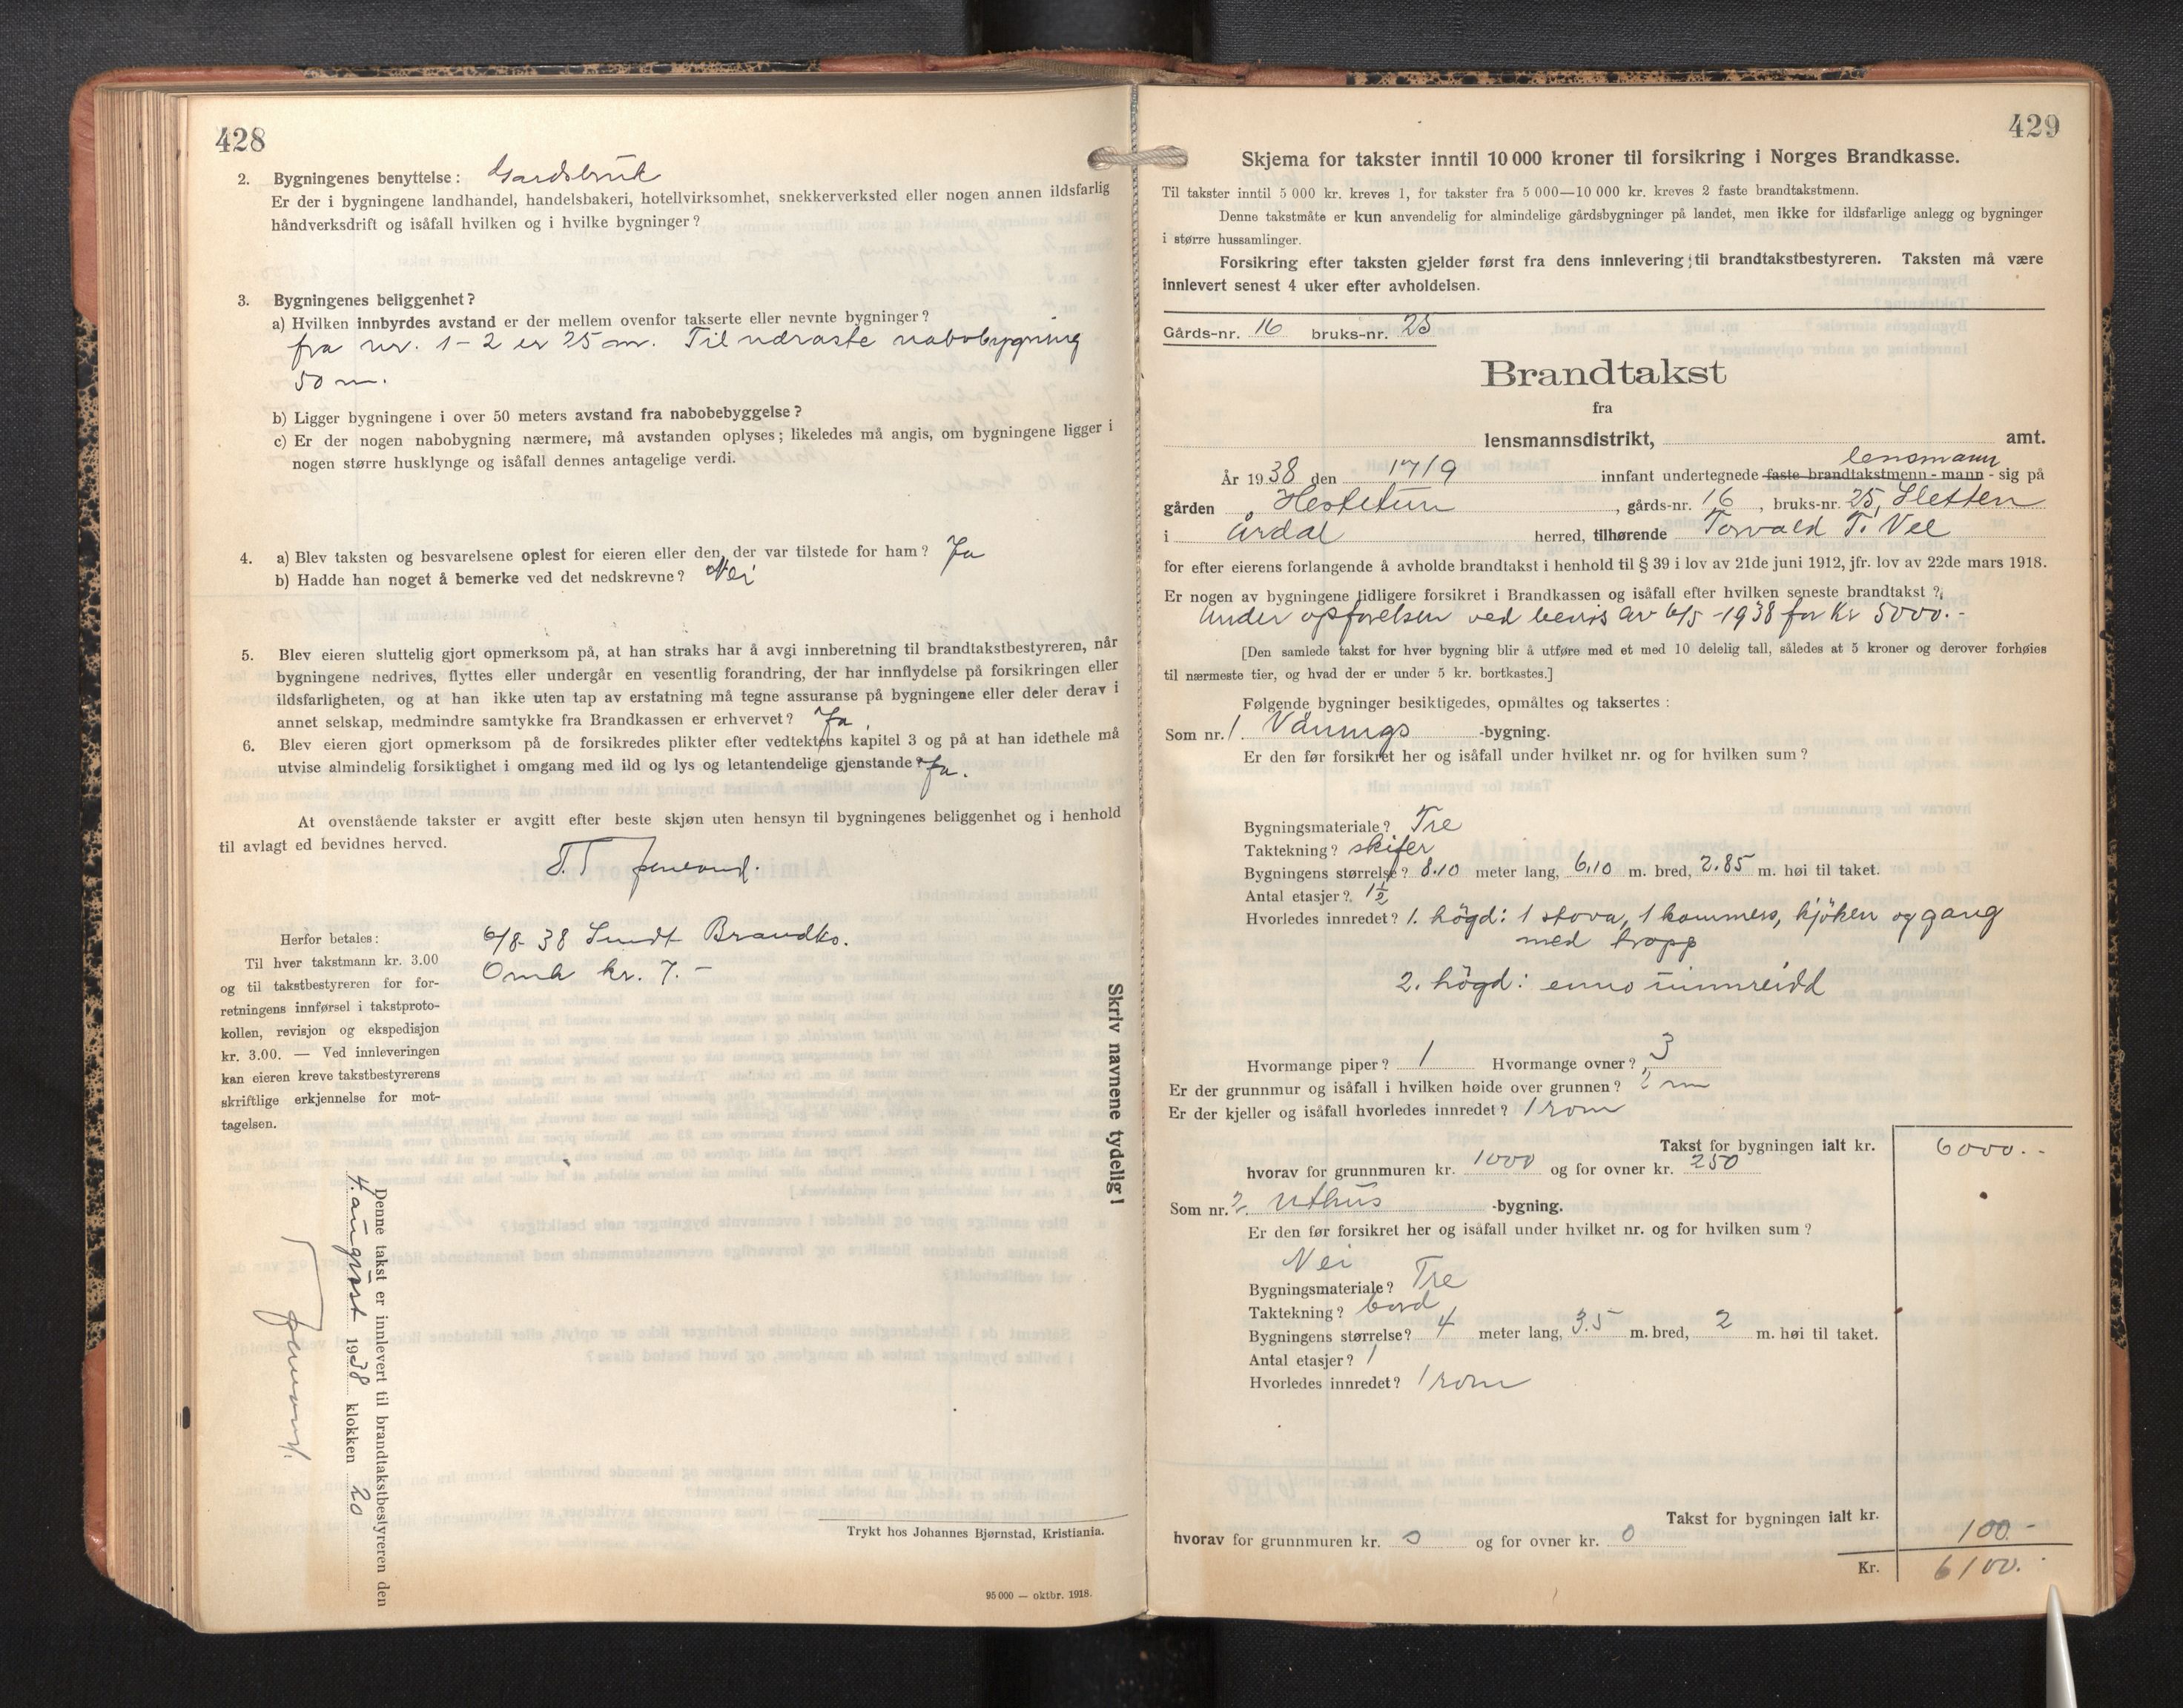 428
2. Bygningenes benyttelse: Gardsbruk
Er der i bygningene landhandel, handelsbakeri, hotellvirksomhet, snekkerverksted eller nogen annen ildsfarlig
håndverksdrift og isåfall hvilken og i hvilke bygninger?
3. Bygningenes beliggenhet?
a) Hvilken innbyrdes avstand er der mellem ovenfor takserte eller nevnte bygninger?
fra nr. 1-2 er 25 m. Til næraste nabobygning
50 m.
b) Ligger bygningene i over 50 meters avstand fra nabobebyggelse?
c) Er der nogen nabobygning nærmere, må avstanden oplyses; likeledes må angis, om bygningene ligger i
nogen større husklynge og isåfall dennes antagelige verdi.
4. a) Blev taksten og besvarelsene oplest for eieren eller den, der var tilstede for ham? Ja
b) Hadde han noget å bemerke ved det nedskrevne? Nei
5. Blev eieren sluttelig gjort opmerksom på, at han straks har å avgi innberetning til brandtakstbestyreren, når
bygningene nedrives, flyttes eller undergår en vesentlig forandring, der har innflydelse på forsikringen eller
ildsfarligheten, og at han ikke uten tap av erstatning må tegne assuranse på bygningene eller deler derav i
annet selskap, medmindre samtykke fra Brandkassen er erhvervet? Ja.
6. Blev eieren gjort opmerksom på de forsikredes plikter efter vedtektens kapitel 3 og på at han idethele må
utvise almindelig forsiktighet i omgang med ild og lys og letantendelige gjenstande? Ja.
At ovenstående takster er avgitt efter beste skjøn uten hensyn til bygningenes beliggenhet og i henhold
til avlagt ed bevidnes herved.
Herfor betales:
Til hver takstmann kr. 3.00
og til takstbestyreren for for-
retningens innførsel i takstproto-
kollen, revisjon og ekspedisjon
kr. 3.00. — Ved innleveringen
kan eieren kreve takstbestyrerens
skriftlige erkjennelse for mot-
tagelsen.
6/8-38 Sendt Brandks.
Omk kr. 7.-
Denne takst er innlevert til brandtakstbestyreren den
4. august 1938 klokken 20
Skriv navnene tydelig!
Trykt hos Johannes Bjørnstad, Kristiania.
95 000 — oktbr. 1918.
429
Skjema for takster inntil 10 000 kroner til forsikring i Norges Brandkasse.
Til takster inntil 5 000 kr. kreves 1, for takster fra 5 000—10 000 kr. kreves 2 faste brandtakstmenn.
Denne takstmåte er kun anvendelig for almindelige gårdsbygninger på landet, men ikke for ildsfarlige anlegg og bygninger
i større hussamlinger.
Forsikring efter taksten gjelder først fra dens innlevering til brandtakstbestyreren. Taksten må være
innlevert senest 4 uker efter avholdelsen.
Gårds-nr. 16 bruks-nr. 25
Brandtakst
fra
lensmannsdistrikt, amt.
År 1938 den 17/9 innfant undertegnede faste brandtakstmenn - mann - lensmann sig på
gården Hestetun, gårds-nr. 16, bruks-nr. 25, Sletten
i Årdal herred, tilhørende Torvald T. Vee
for efter eierens forlangende å avholde brandtakst i henhold til § 39 i lov av 21de juni 1912, jfr. lov av 22de mars 1918.
Er nogen av bygningene tidligere forsikret i Brandkassen og isåfall efter hvilken seneste brandtakst?
Under opførelsen ved bevis av 6/5-1938 for Kr 5000.-
[Den samlede takst for hver bygning blir å utføre med et med 10 delelig tall, således at 5 kroner og derover forhøies
til nærmeste tier, og hvad der er under 5 kr. bortkastes.]
Følgende bygninger besiktigedes, opmåltes og taksertes:
Som nr. 1. Vånings-bygning.
Er den før forsikret her og isåfall under hvilket nr. og for hvilken sum?
Bygningsmateriale? Tre
Taktekning? skifer
Bygningens størrelse? 8.10 meter lang, 6.10 m. bred, 2.85 m. høi til taket.
Antal etasjer? 1½
Hvorledes innredet? 1. högd: 1 stova, 1 kammers, kjöken og gang
med tropp
2. högd: enno uinnreidd
Hvormange piper? 1 Hvormange ovner? 3
Er der grunnmur og isåfall i hvilken høide over grunnen? 2 m
Er der kjeller og isåfall hvorledes innredet? 1 rom
Takst for bygningen ialt kr. 6000.-
hvorav for grunnmuren kr. 1000 og for ovner kr. 250
Som nr. 2. Uthus -bygning.
Er den før forsikret her og isåfall under hvilket nr. og for hvilken sum?
Nei
Bygningsmateriale? Tre
Taktekning? bord
Bygningens størrelse? 4 meter lang, 3.5 m. bred, 2 m. høi til taket.
Antal etasjer? 1
Hvorledes innredet? 1 rom
Takst for bygningen ialt kr. 100.-
hvorav for grunnmuren kr. 0 og for ovner kr. 0
Kr. 6100.-